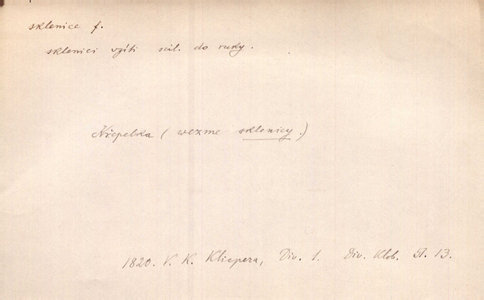 sklenice f.
sklenici vzíti scil. do ruky.
Křepelka (wezme sklenicy.)
1820. V. K. Klicpera, Div. 1. Div. Klob. St. 13.